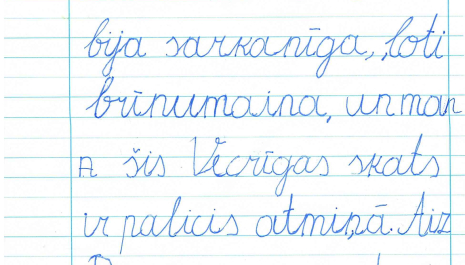 bija sarkanīga, ļoti
brīnumaina, un man
A šis Vecrīgas skats
ir palicis atmiņā. Aiz